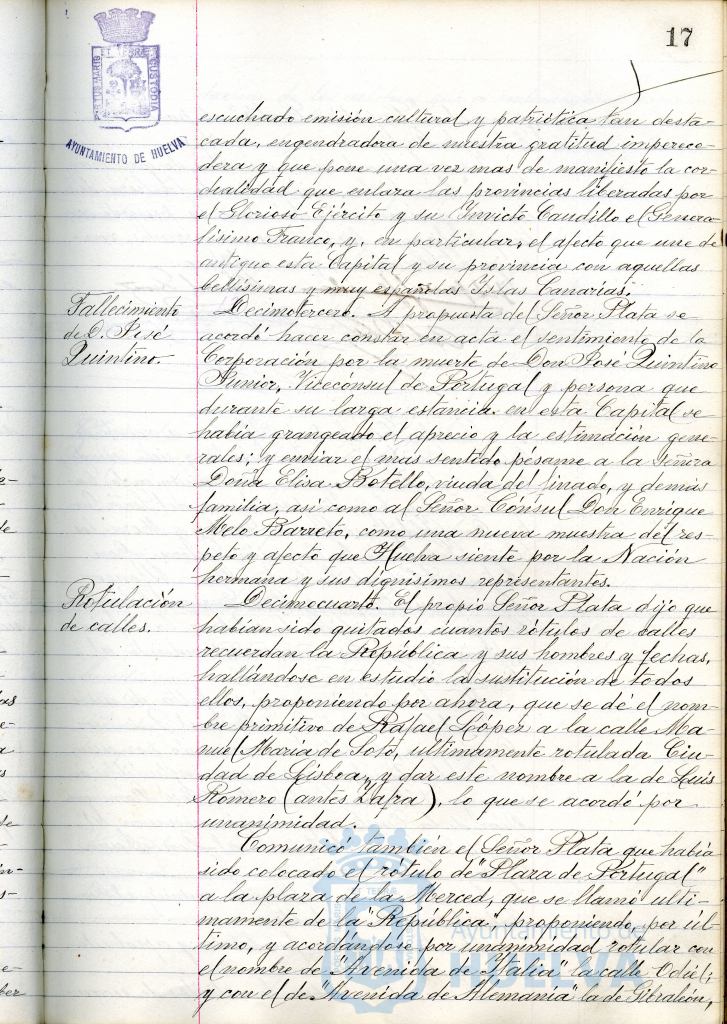 17
PORTUS MARIS ET TERRE CUSTODIA
AYUNTAMIENTO DE HUELVA
escuchado emisión cultural y patriótica tan desta-
cada, engendradora de nuestra gratitud imperece-
dera y que pone una vez mas de manifiesto la cor-
dialidad que enlaza las provincias liberadas por
el Glorioso Ejército y su Invicto Caudillo el Genera-
lísimo Franco, y, en particular, el afecto que une de
antiguo esta Capital y su provincia con aquellas
bellísimas y muy españolas Islas Canarias.
Fallecimiento
de D. José
Quintino.
Decimotercero. A propuesta del Señor Plata se
acordó hacer constar en acta el sentimiento de la
Corporación por la muerte de Don José Quintino
Junior, Vicecónsul de Portugal y persona que
durante su larga estancia en esta Capital se
había grangeado el aprecio y la estimación gene-
rales; y enviar el mas sentido pésame a la Señora
Doña Elisa Botello, viuda del finado, y demás
familia, asi como al Señor Cónsul Don Enrique
Melo Barreto, como una nueva muestra del res-
peto y afecto que Huelva siente por la Nación
hermana y sus dignísimos representantes.
Rotulación
de calles.
Decimocuarto. El propio Señor Plata dijo que
habían sido quitados cuantos rótulos de calles
recuerdan la República y sus hombres y fechas,
hallándose en estudio la sustitución de todos
ellos, proponiendo por ahora, que se dé el nom-
bre primitivo de Rafael López a la calle Ma-
nuel Maria de Soto, ultimamente rotulada Ciu-
dad de Lisboa, y dar este nombre a la de Luis
Romero (antes Zafra), lo que se acordó por
unanimidad.
Comunicó también el Señor Plata que había
sido colocado el rótulo de "Plaza de Portugal"
a la plaza de la Merced, que se llamó ulti-
mamente de la "República", proponiendo, por úl-
timo, y acordándose por unanimidad rotular con
el nombre de "Avenida de Italia" la calle Odiel;
y con el de "Avenida de Alemania" la de Gibraleón,
Ayuntamiento de
HUELVA